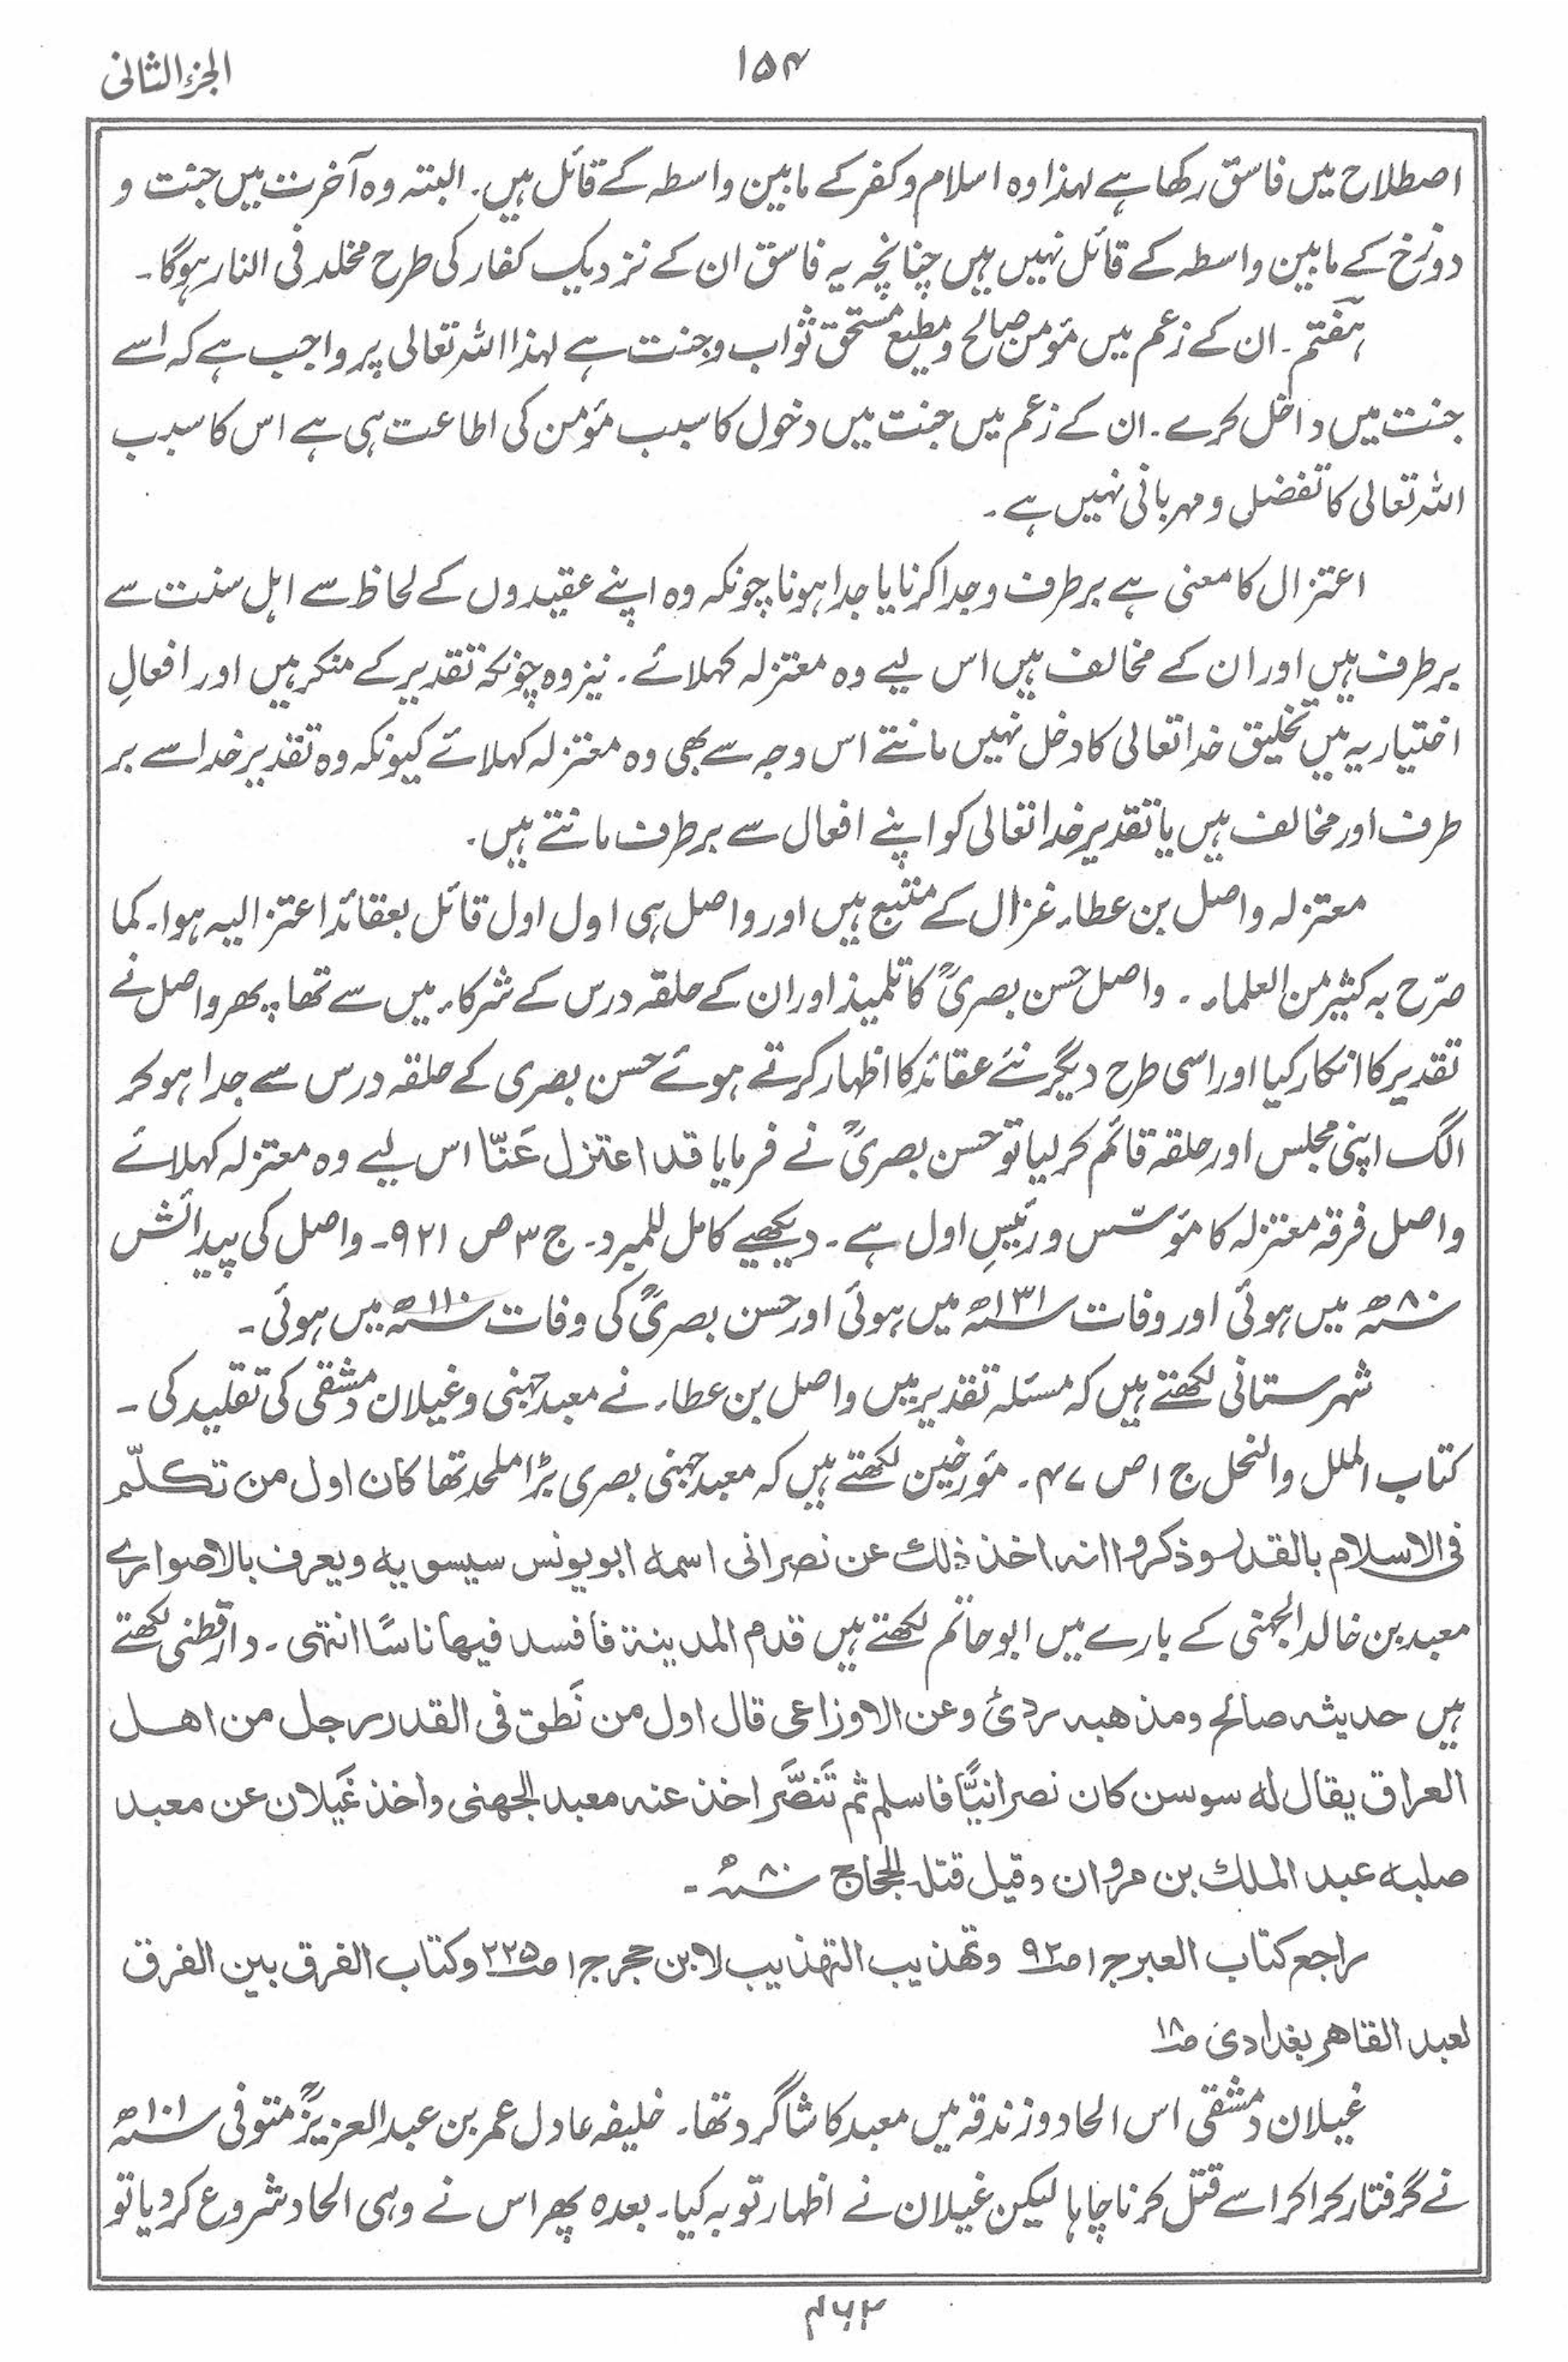 الجزء الثانی
۱۵۴
اصطلاح میں فاسق رکھا ہے لہذا وہ اسلام و کفر کے مابین واسطہ کے قائل ہیں۔ البتہ وہ آخرت میں جنت و
دوزخ کے مابین واسطہ کے قائل نہیں ہیں چنانچہ یہ فاسق ان کے نزدیک کفار کی طرح مخلد فی النار ہوگا۔
ہفتم۔ ان کے زعم میں مؤمن صالح و مطیع مستحق ثواب و جنت ہے لہذا اللہ تعالی پر واجب ہے کہ اسے
جنت میں داخل کرے۔ ان کے زعم میں جنت میں دخول کا سبب مؤمن کی اطاعت ہی ہے اس کا سبب
اللہ تعالی کا تفضل و مہربانی نہیں ہے۔
اعتزال کا معنی ہے برطرف و جدا کرنا یا جدا ہونا چونکہ وہ اپنے عقیدوں کے لحاظ سے اہل سنت سے
برطرف ہیں اور ان کے مخالف ہیں اس لیے وہ معتزلہ کہلائے۔ نیز وہ چونکہ تقدیر کے منکر ہیں اور افعالِ
اختیاریہ میں تخلیق خدا تعالی کا دخل نہیں مانتے اس وجہ سے بھی وہ معتزلہ کہلائے کیونکہ وہ تقدیر خدا سے بر
طرف اور مخالف ہیں یا تقدیرِ خدا تعالی کو اپنے افعال سے برطرف مانتے ہیں۔
معتزلہ واصل بن عطاء غزال کے متبع ہیں اور واصل ہی اول اول قائل بعقائد اعتزالیہ ہوا۔ کما
صرّح بہ کثیر من العلماء۔ واصل حسن بصریؒ کا تلمیذ اور ان کے حلقہ درس کے شرکاء میں سے تھا پھر واصل نے
تقدیر کا انکار کیا اور اسی طرح دیگر نئے عقائد کا اظہار کرتے ہوئے حسن بصری کے حلقہ درس سے جدا ہوکر
الگ اپنی مجلس اور حلقہ قائم کرلیا تو حسن بصریؒ نے فرمایا قد اعتزل عَنّا اس لیے وہ معتزلہ کہلائے
واصل فرقہ معتزلہ کا مؤسّس و رئیسِ اول ہے۔ دیکھیے کامل للمبرد۔ ج ۳ ص ۹۲۱۔ واصل کی پیدائش
۸۰ھ میں ہوئی اور وفات ۱۳۱ھ میں ہوئی اور حسن بصریؒ کی وفات ۱۱۰ھ میں ہوئی۔
شہرستانی لکھتے ہیں کہ مسئلہ تقدیر میں واصل بن عطاء نے معبد جہنی و غیلان دمشقی کی تقلید کی۔
کتاب الملل والنحل ج ۱ ص ۴۷۔ مؤرخین لکھتے ہیں کہ معبد جہنی بصری بڑا ملحد تھا کان اول من تکلّم
فی الاسلام بالقدر وذکروا انہ اخذ ذلک عن نصرانی اسمہ ابویونس سیسویہ ویعرف بالاصواری
معبد بن خالد الجہنی کے بارے میں ابوحاتم لکھتے ہیں قدم المدینۃ فافسد فیھا ناسًا انتہی۔ دارقطنی لکھتے
ہیں حدیثہ صالح ومذھبہ ردئ وعن الاوزاعی قال اول من نَطق فی القدر رجل من اھل
العراق یقال لہ سوسن کان نصرانیًّا فاسلم ثم تَنصَّرَ اخذ عنہ معبد الجھنی واخذ غَیلان عن معبد
صلبہ عبد الملک بن مروان وقیل قتلہ الحجاج ۸۰ھ۔
راجع کتاب العبر ج ۱ ص ۹۲ وتھذیب التھذیب لابن حجر ج ۱ ص ۲۲۵ وکتاب الفرق بین الفرق
لعبد القاھر بغدادی ص ۱۸
غیلان دمشقی اس الحاد و زندقہ میں معبد کا شاگرد تھا۔ خلیفہ عادل عمر بن عبد العزیزؒ متوفی ۱۰۱ھ
نے گرفتار کراکر اسے قتل کرنا چاہا لیکن غیلان نے اظہار توبہ کیا۔ بعدہ پھر اس نے وہی الحاد شروع کردیا تو
۴۶۲